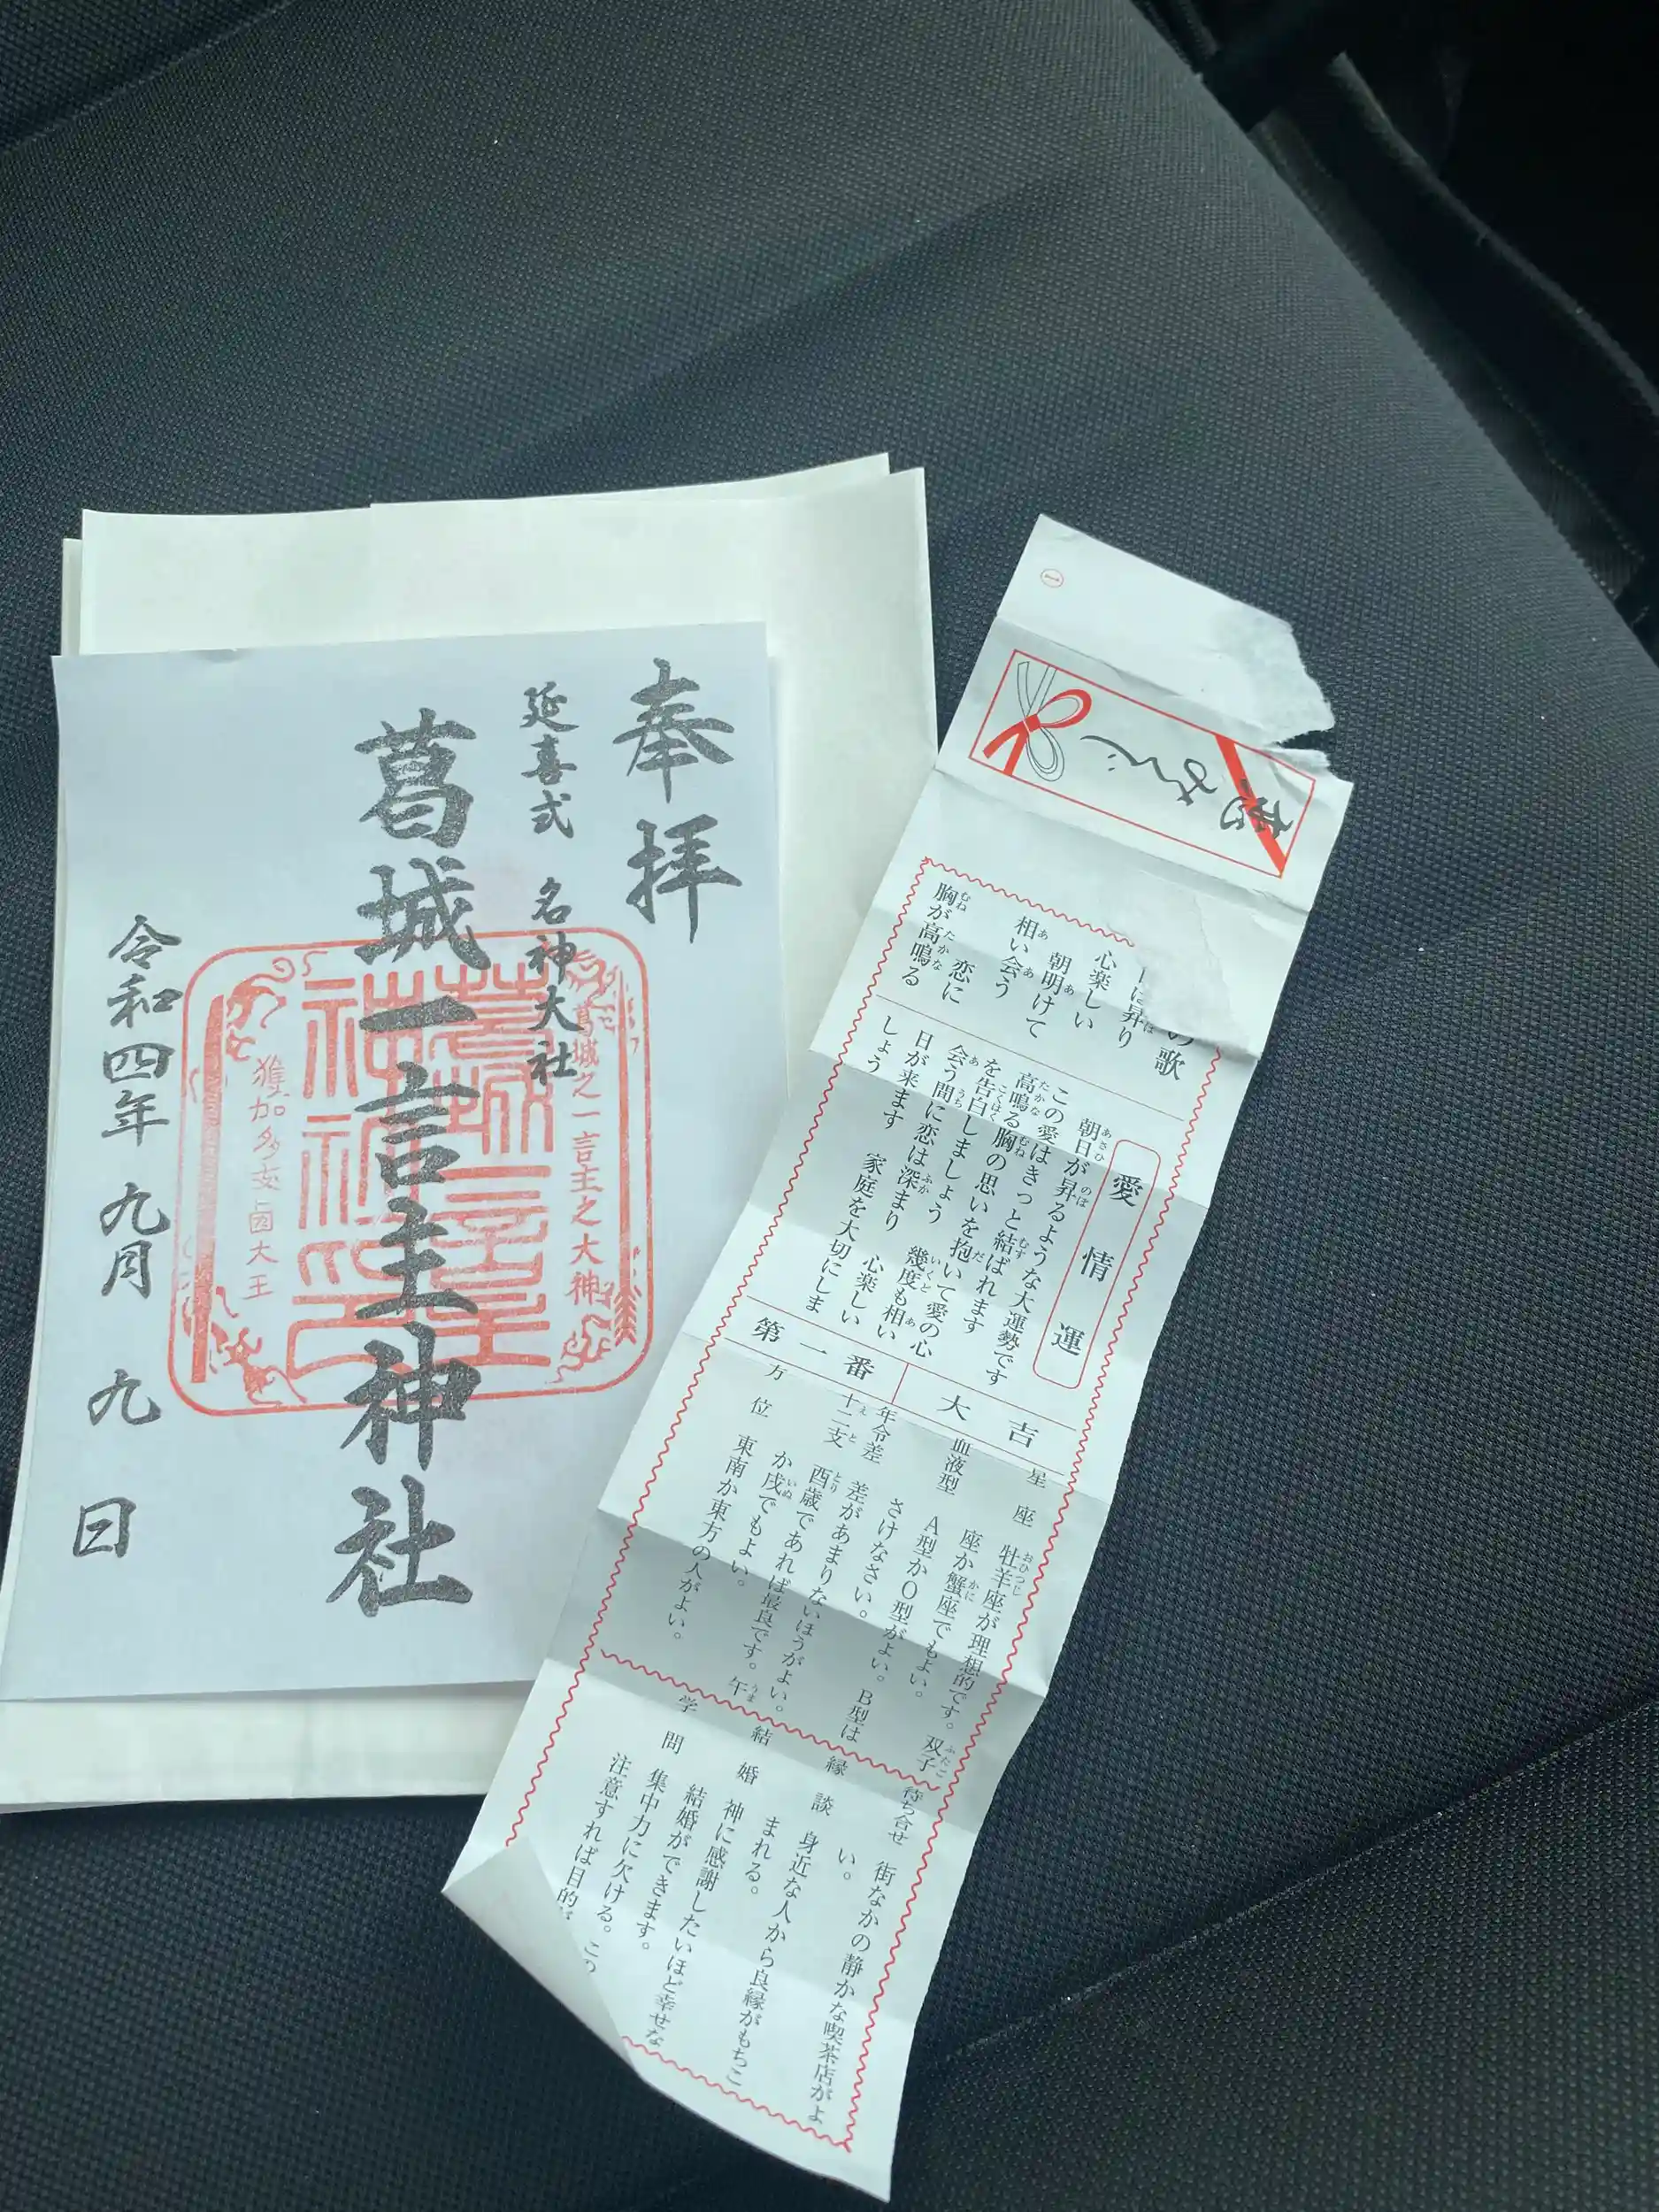 奉拝
延喜式 名神大社
葛城一言主神社
令和四年 九月 九 日
葛城之一言主之大神
大王
恋みくじ
の歌
は昇り
心楽しい
朝明けて
相い会う
恋に
胸が高鳴る
愛情運
朝日が昇るような大運勢です
この愛はきっと結ばれます
高鳴る胸の思いを抱いて愛の心
を告白しましょう 幾度も相い
会う間に恋は深まり 心楽しい
日が来ます 家庭を大切にしま
しょう
第一番 大吉
星座 牡羊座が理想的です。双子
座か蟹座でもよい。
血液型 A型かO型がよい。B型は
さけなさい。
年令差 差があまりないほうがよい。
十二支 酉歳であれば最良です。午
か戌でもよい。
方位 東南か東方の人がよい。
待ち合せ 街なかの静かな喫茶店がよ
い。
縁談 身近な人から良縁がもちこ
まれる。
結婚 神に感謝したいほど幸せな
結婚ができます。
学問 集中力に欠ける。この
注意すれば目的